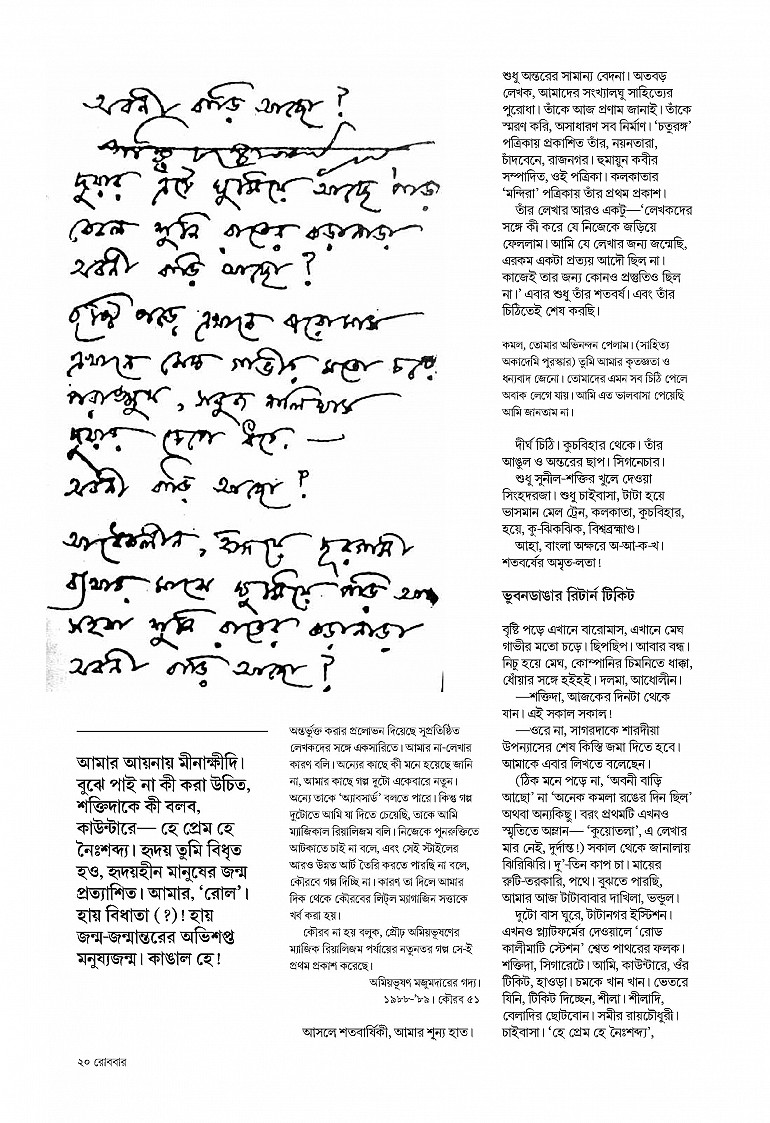 অবনী বাড়ি আছো?
দুয়ার এঁটে ঘুমিয়ে আছে পাড়া
কেবল শুনি রাতের কড়ানাড়া
অবনী বাড়ি আছো?
বৃষ্টি পড়ে এখানে বারোমাস
এখানে মেঘ গাভীর মতো চরে
পরাঙ্মুখ, সবুজ নালিঘাস
দুয়ার চেপে ধরে –
অবনী বাড়ি আছো?
আধেকলীন, হৃদয়ে দূরগামী
ব্যথার মাঝে ঘুমিয়ে পড়ি আমি
সহসা শুনি রাতের কড়ানাড়া
অবনী বাড়ি আছো?
আমার আয়নায় মীনাক্ষীদি।
বুঝে পাই না কী করা উচিত,
শক্তিদাকে কী বলব,
কাউন্টারে— হে প্রেম হে
নৈঃশব্দ্য। হৃদয় তুমি বিধৃত
হও, হৃদয়হীন মানুষের জন্ম
প্রত্যাশিত। আমার, ‘রোল’।
হায় বিধাতা (?)! হায়
জন্ম-জন্মান্তরের অভিশপ্ত
মনুষ্যজন্ম। কাঙাল হে!
অন্তর্ভুক্ত করার প্রলোভন দিয়েছে সুপ্রতিষ্ঠিত
লেখকদের সঙ্গে একসারিতে। আমার না-লেখার
কারণ বলি। অন্যের কাছে কী মনে হয়েছে জানি
না, আমার কাছে গল্প দুটো একেবারে নতুন।
অন্যে তাকে ‘অ্যাবসার্ড’ বলতে পারে। কিন্তু গল্প
দুটোতে আমি যা দিতে চেয়েছি, তাকে আমি
ম্যাজিকাল রিয়ালিজম বলি। নিজেকে পুনরুক্তিতে
আটকাতে চাই না বলে, এবং সেই স্টাইলের
আরও উন্নত আর্ট তৈরি করতে পারছি না বলে,
কৌরবে গল্প দিচ্ছি না। কারণ তা দিলে আমার
দিক থেকে কৌরবের লিট্‌ল ম্যাগাজিন সত্তাকে
খর্ব করা হয়।
কৌরব না হয় বলুক, প্রৌঢ় অমিয়ভূষণের
ম্যাজিক রিয়ালিজম পর্যায়ের নতুনতর গল্প সে-ই
প্রথম প্রকাশ করেছে।
অমিয়ভূষণ মজুমদারের গদ্য।
১৯৮৮-’৮৯। কৌরব ৫১
আসলে শতবার্ষিকী, আমার শূন্য হাত।
শুধু অন্তরের সামান্য বেদনা। অতবড়
লেখক, আমাদের সংখ্যালঘু সাহিত্যের
পুরোধা। তাঁকে আজ প্রণাম জানাই। তাঁকে
স্মরণ করি, অসাধারণ সব নির্মাণ। ‘চতুরঙ্গ’
পত্রিকায় প্রকাশিত তাঁর, নয়নতারা,
চাঁদবেনে, রাজনগর। হুমায়ুন কবীর
সম্পাদিত, ওই পত্রিকা। কলকাতার
‘মন্দিরা’ পত্রিকায় তাঁর প্রথম প্রকাশ।
তাঁর লেখার আরও একটু—‘লেখকদের
সঙ্গে কী করে যে নিজেকে জড়িয়ে
ফেললাম। আমি যে লেখার জন্য জন্মেছি,
এরকম একটা প্রত্যয় আদৌ ছিল না।
কাজেই তার জন্য কোনও প্রস্তুতিও ছিল
না।’ এবার শুধু তাঁর শতবর্ষ। এবং তাঁর
চিঠিতেই শেষ করছি।
কমল, তোমার অভিনন্দন পেলাম। (সাহিত্য
অকাদেমি পুরস্কার) তুমি আমার কৃতজ্ঞতা ও
ধন্যবাদ জেনো। তোমাদের এমন সব চিঠি পেলে
অবাক লেগে যায়। আমি এত ভালবাসা পেয়েছি
আমি জানতাম না।
দীর্ঘ চিঠি। কুচবিহার থেকে। তাঁর
আঙুল ও অন্তরের ছাপ। সিগনেচার।
শুধু সুনীল-শক্তির খুলে দেওয়া
সিংহদরজা। শুধু চাইবাসা, টাটা হয়ে
ভাসমান মেল ট্রেন, কলকাতা, কুচবিহার,
হয়ে, কু-ঝিকঝিক, বিশ্বব্রহ্মাণ্ড।
আহা, বাংলা অক্ষরে অ-আ-ক-খ।
শতবর্ষের অমৃত-লতা!
ভুবনডাঙার রিটার্ন টিকিট
বৃষ্টি পড়ে এখানে বারোমাস, এখানে মেঘ
গাভীর মতো চড়ে। ছিপছিপ। আবার বন্ধ।
নিচু হয়ে মেঘ, কোম্পানির চিমনিতে ধাক্কা,
ধোঁয়ার সঙ্গে হইহই। দলমা, আধোলীন।
—শক্তিদা, আজকের দিনটা থেকে
যান। এই সকাল সকাল!
—ওরে না, সাগরদাকে শারদীয়া
উপন্যাসের শেষ কিস্তি জমা দিতে হবে।
আমাকে এবার লিখতে বলেছেন।
(ঠিক মনে পড়ে না, ‘অবনী বাড়ি
আছো’ না ‘অনেক কমলা রঙের দিন ছিল’
অথবা অন্যকিছু। বরং প্রথমটি এখনও
স্মৃতিতে অম্লান— ‘কুয়োতলা’, এ লেখার
মার নেই, দুর্দান্ত!) সকাল থেকে জানালায়
ঝিরিঝিরি। দু’-তিন কাপ চা। মায়ের
রুটি-তরকারি, পথে। বুঝতে পারছি,
আমার আজ টাটাবাবার দাখিলা, ভন্ডুল।
দুটো বাস ঘুরে, টাটানগর ইস্টিশন।
এখনও প্ল্যাটফর্মের দেওয়ালে ‘রোড
কালীমাটি স্টেশন’ শ্বেত পাথরের ফলক।
শক্তিদা, সিগারেটে। আমি, কাউন্টারে, ওঁর
টিকিট, হাওড়া। চমকে খান খান। ভেতরে
যিনি, টিকিট দিচ্ছেন, শীলা। শীলাদি,
বেলাদির ছোটবোন। সমীর রায়চৌধুরী।
চাইবাসা। ‘হে প্রেম হে নৈঃশব্দ্য’,
২০ রোববার